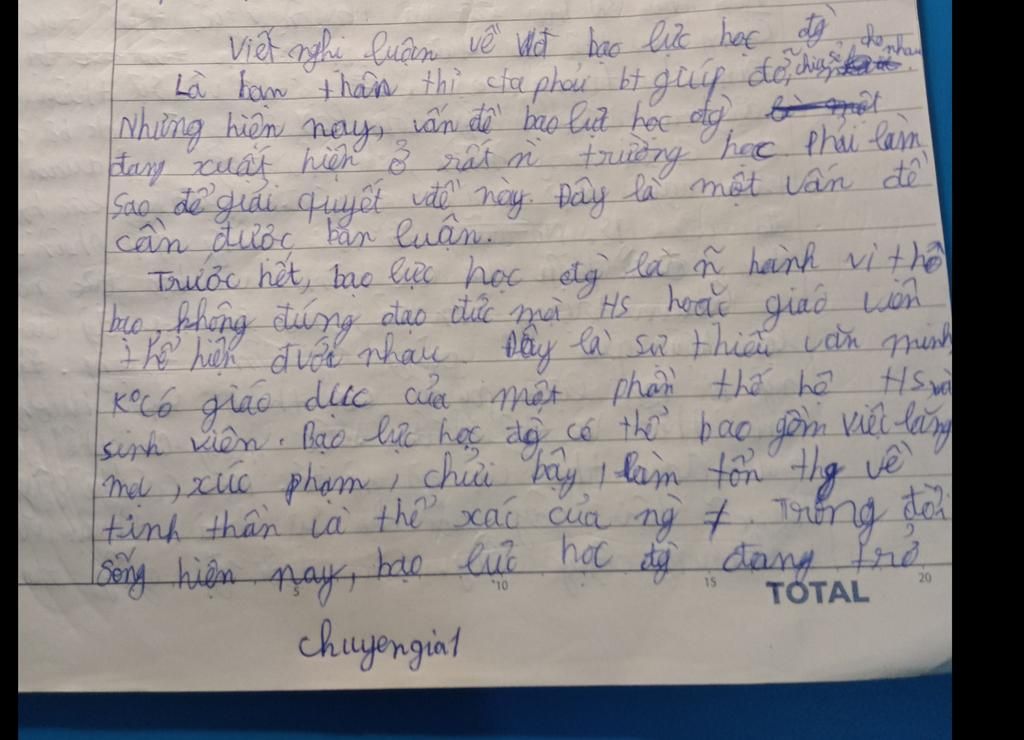 Viết nghị luận về vđ bạo lực học đg
Là bạn thân thì cta phải bt giúp đỡ, chia sẻ cho nhau.
Nhưng hiện nay, vấn đề bạo lực học đg
đang xuất hiện ở rất n trường học phải làm
sao để giải quyết vđề này. Đây là một vấn đề
cần được bàn luận.
Trước hết, bạo lực học đg là ~n hành vi thô
bạo, không đúng đạo đức mà HS hoặc giáo viên
thể hiện đvới nhau. Đây là sự thiếu văn minh
k° có giáo dục của một phần thế hệ HS và
sinh viên. Bạo lực học đg có thể bao gồm việc lăng
mạ, xúc phạm, chửi bậy, làm tổn thg về
tinh thần và thể xác của ng ≠. Trong đời
sống hiện nay, bạo lực học đg đang trở
5 10 15 20
TOTAL
chuyengia1